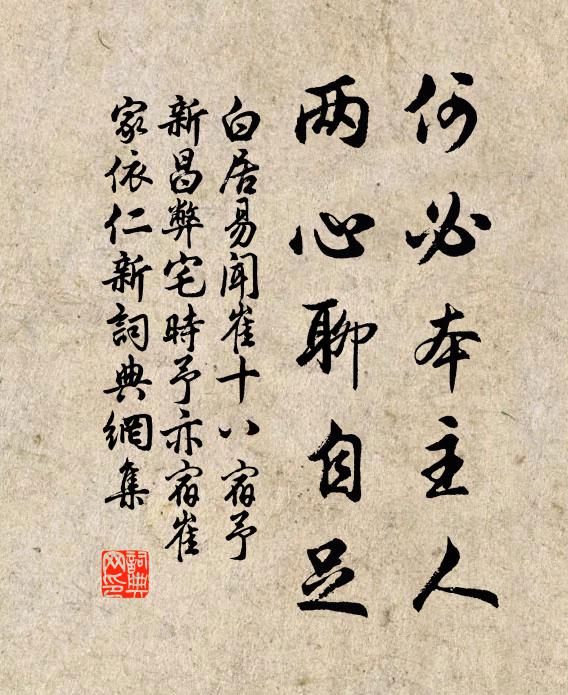 何必本主人
两心聊自足
白居易闻崔十八宿予
新昌弊宅時予亦宿崔
家依仁新詞典網集
詞典網印